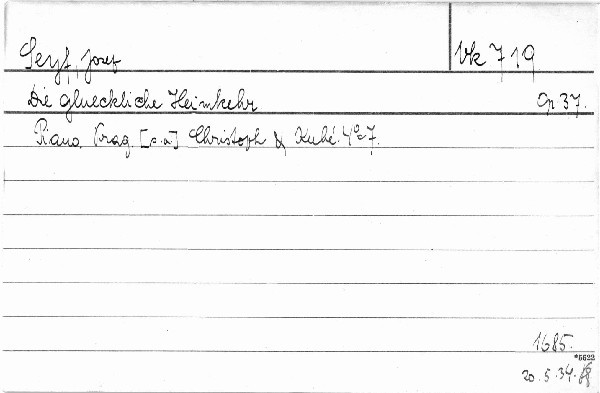 Seyf, Josef Vk 719
Die glueckliche Heimkehr Op 37.
Piano. Prag. [s.a.] Christoph & Kuhé. 4° 7.
1685.
*5622
20.5.34.